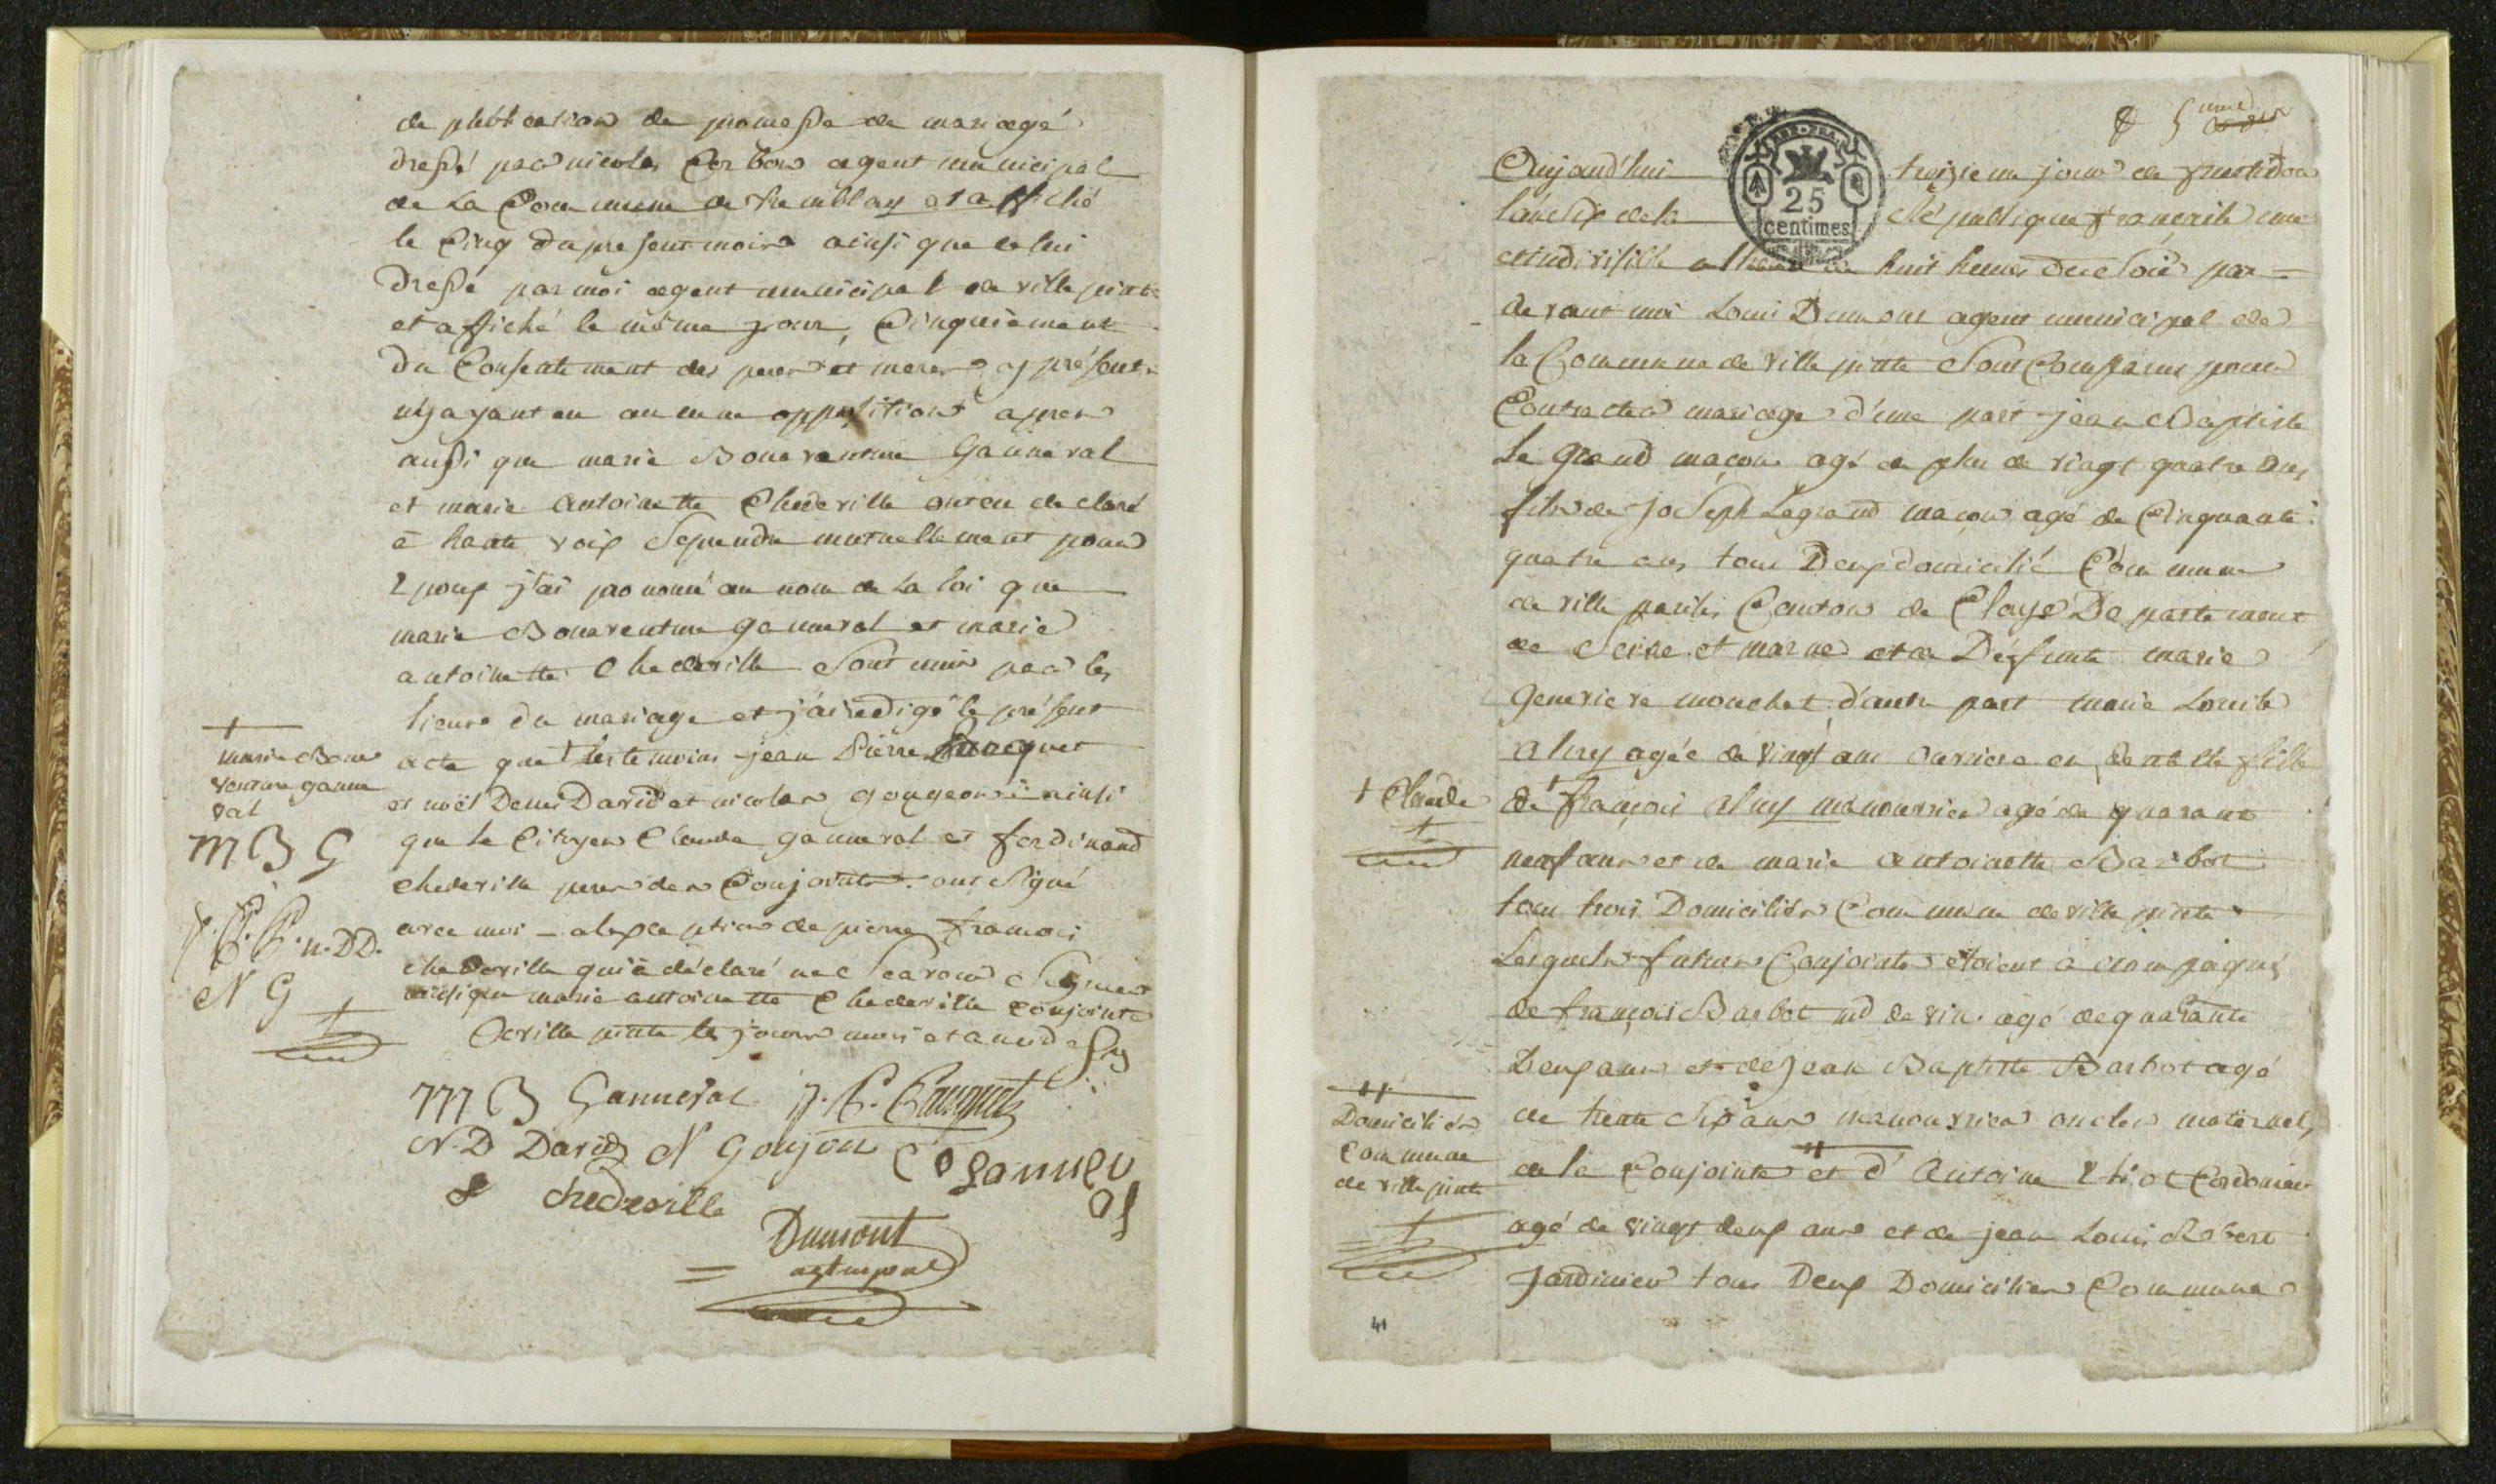 de publication de promesse de mariage
dressé par nicolas Corbon agent municipal
de la Commune de tremblay et affiché
le Cinq du present mois ainsi que celui
dressé par moi agent municipal de ville pinte
et affiché le même jour, Cinquiement
du Consentement des peres et meres y présents
n'y ayant eu aucune opposition apres
aussi que marie Bonaventure Ganneral
et marie Antoinette Chedeville ont eu declaré
à haute voix se prendre mutuellement pour
Epoux j'ai prononcé au nom de la loi que
marie Bonaventure ganneral et marie
antoinette Chedeville sont unis par les
liens du mariage et j'ai redigé le présent
acte que † les temoins jean Pierre
et noël Denis David et nicolas gougeon ainsi
que le Citoyen Claude ganneral et ferdinand
chedeville peres des Conjoints ont signé
avec moi - a lexception de pierre francois
chedeville qui à déclaré ne savoir signer
ainsi que marie antoinette Chedeville conjointe
à ville pinte les jours mois et an
†
marie Bona
venture ganne
ral
M B G
n. DD.
N G
M B Ganneral J. P.
N. D David N Goujon C ganner
al
f chedeville
Dumont
agt mpal
Aujourd'hui treizieme jour de fructidor
l'an Six de la République française une
et indivisible a lheure de huit heures du Soir par=
devant moi Louis Dumont agent municipal de
la Commune de ville pinte Sont Comparus pour
Contracter mariage d'une part jean Baptiste
Le Grand maçon agé de plus de vingt quatre ans
fils de joseph Legrand maçon agé de Cinquante
quatre ans tous Deux domicilié Commune
de ville parisis Canton de Claye Departement
de Seine et marne et de Défunte marie
genevieve mouchet d'autre part marie Louise
agée de vingt ans ouvriere en dentelle fille
de † françois manouvrier agé de quarante
neuf ans et de marie antoinette Barbot
tous trois Domiciliés Commune de ville pinte
Lesquels futurs Conjoints étoient acompagnés
de françois Barbot md de vin agé de quarante
Deux ans et de jean Baptiste Barbot agé
de trente Six ans manouvrier oncles maternels
de la Conjointe et d'Antoine Cordonier
agé de vingt deux ans et de jean Louis Robert
jardinier tous Deux Domiciliés Commune
† Claude
Domiciliés
Commune
de ville pinte
25
centimes
41